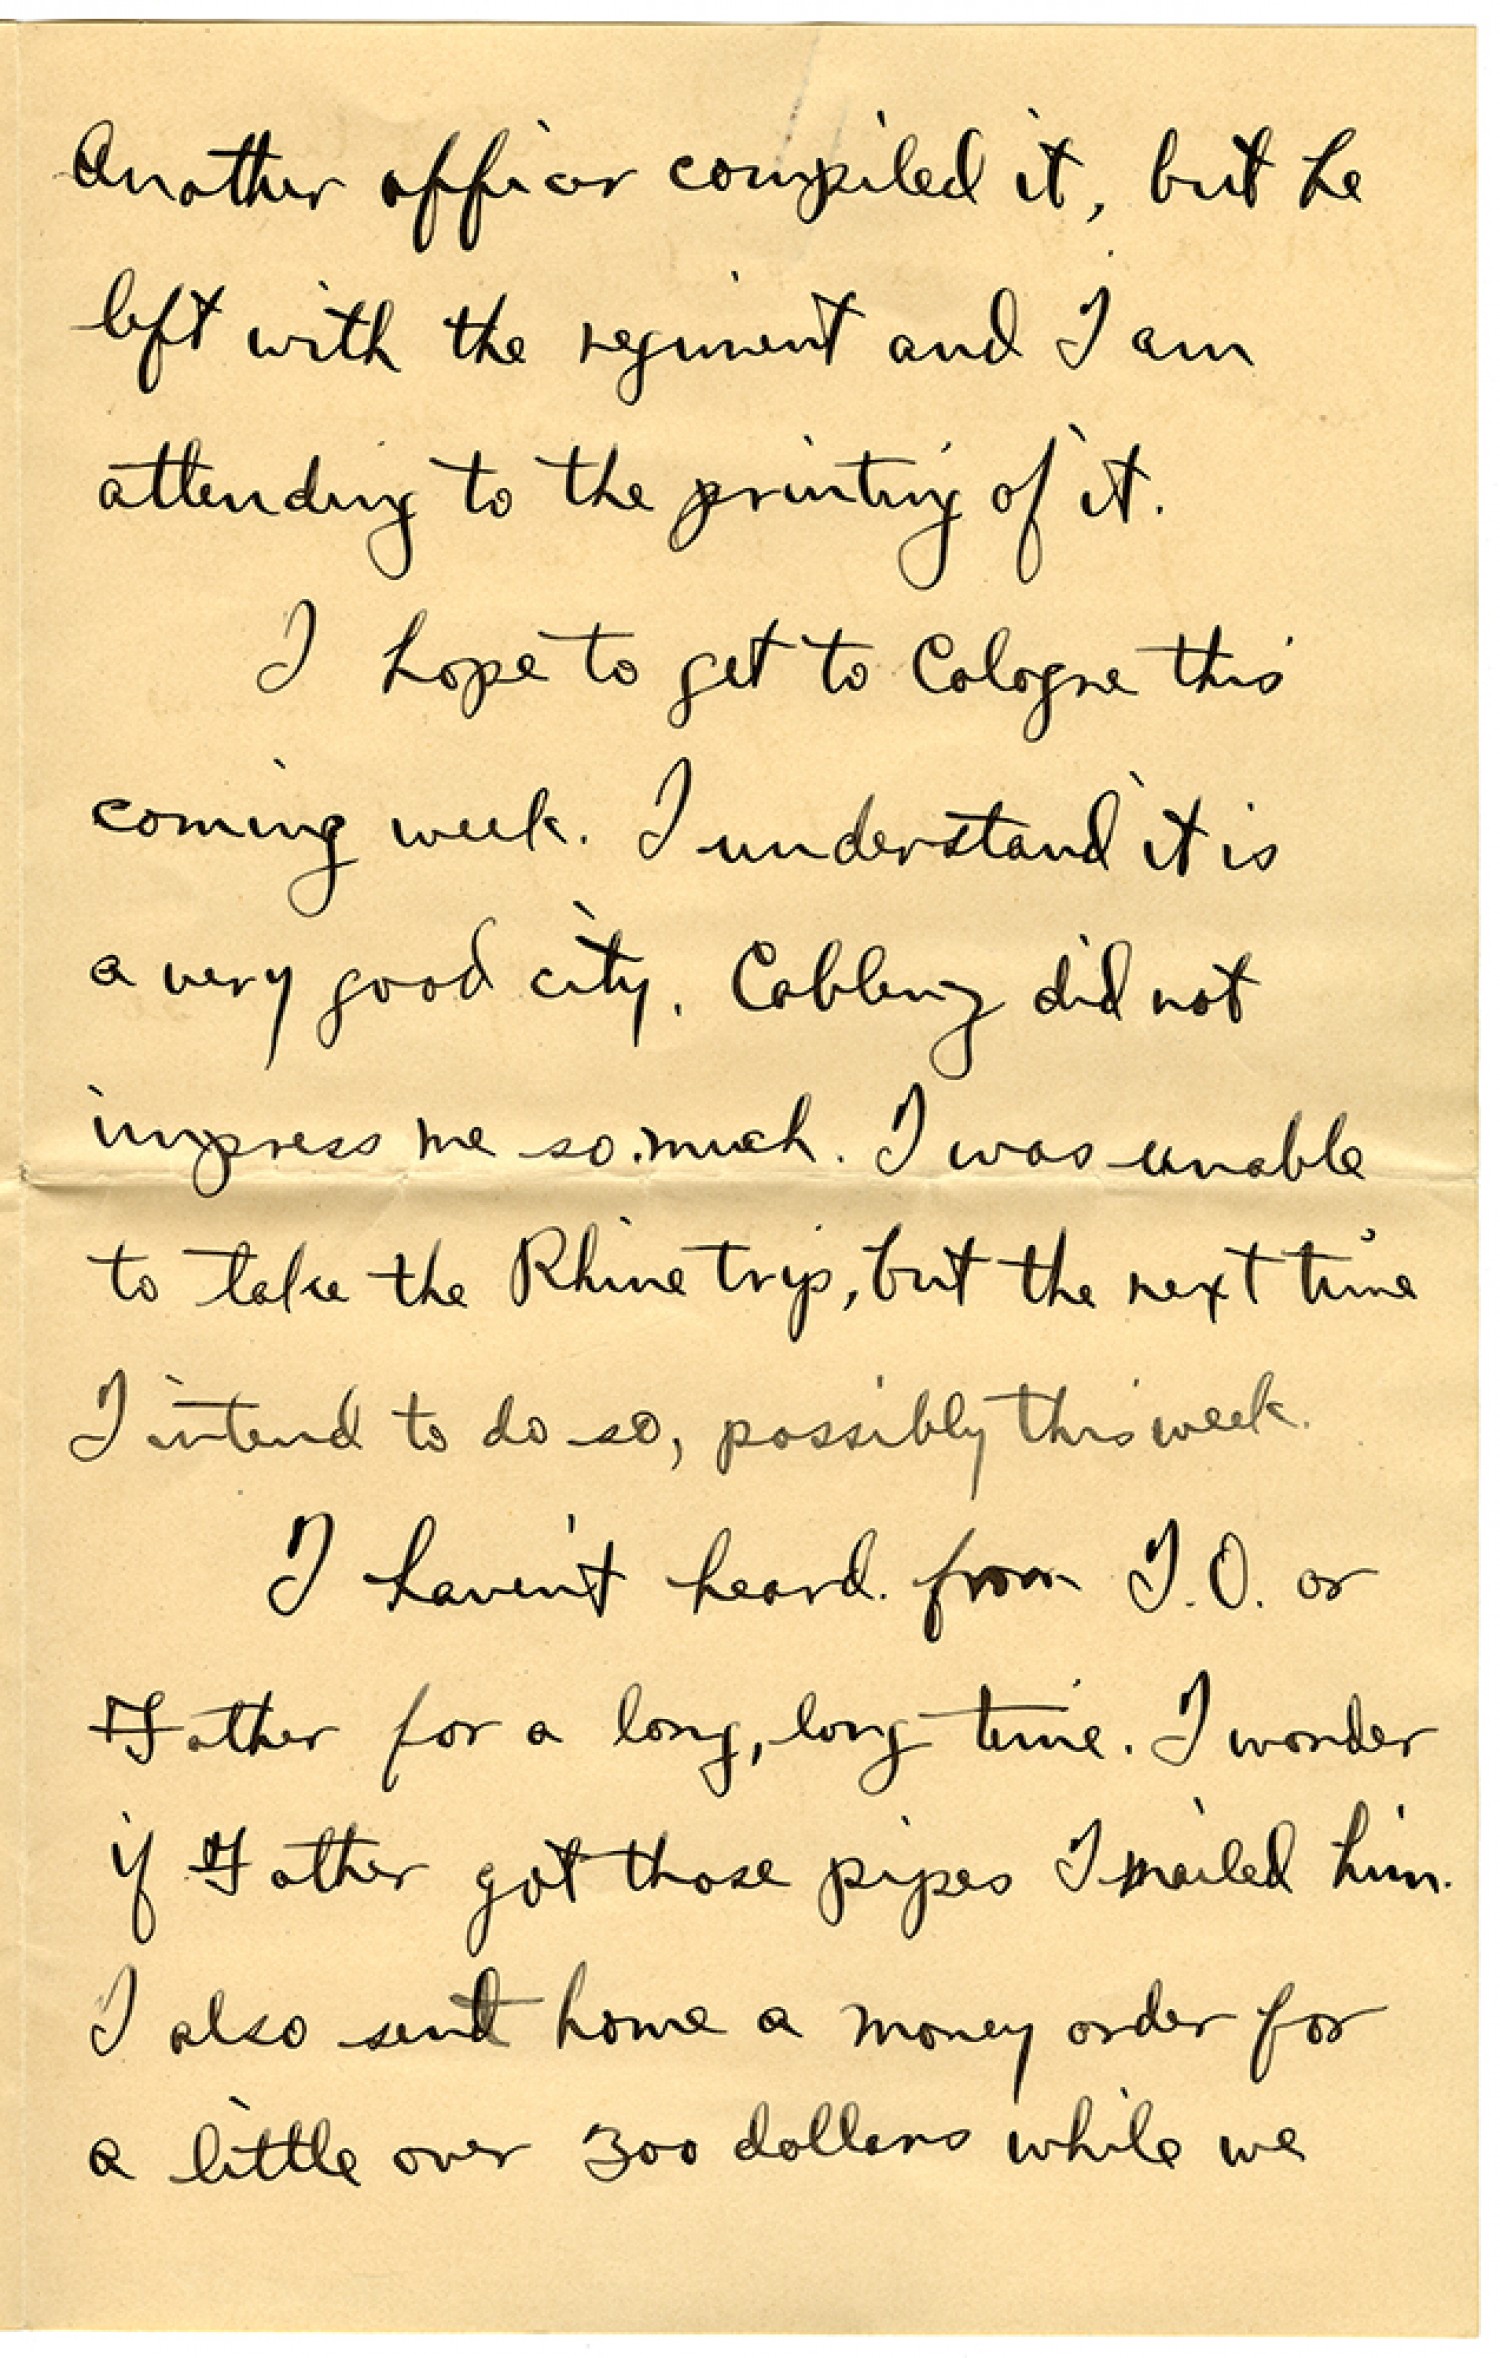 Another officer compiled it, but he
left with the regiment and I am
attending to the printing of it.
I hope to get to Cologne this
coming week. I understand it is
a very good city. Cobblenz did not
impress me so much. I was unable
to take the Rhine trip, but the next time
I intend to do so, possibly this week.
I haven't heard from J.O. or
Father for a long, long time. I wonder
if Father got those pipes I mailed him.
I also sent home a money order for
a little over 300 dollars while we